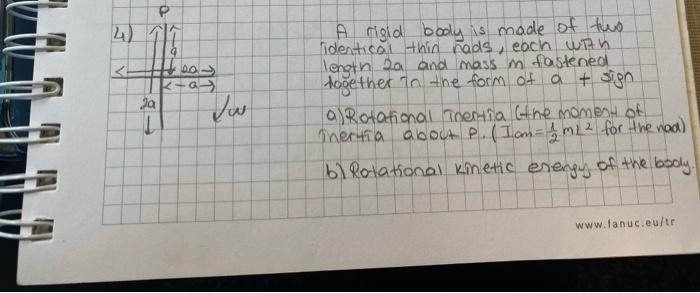 P
4)
a
2a
a
2a
w
A rigid body is made of two
identical thin rods, each with
length 2a and mass m fastened
together in the form of a + sign
a) Rotational inertia (the moment of
inertia about P. (Icm=1/2 mL² for the rod)
b) Rotational kinetic energy of the body.
www.fanuc.eu/tr